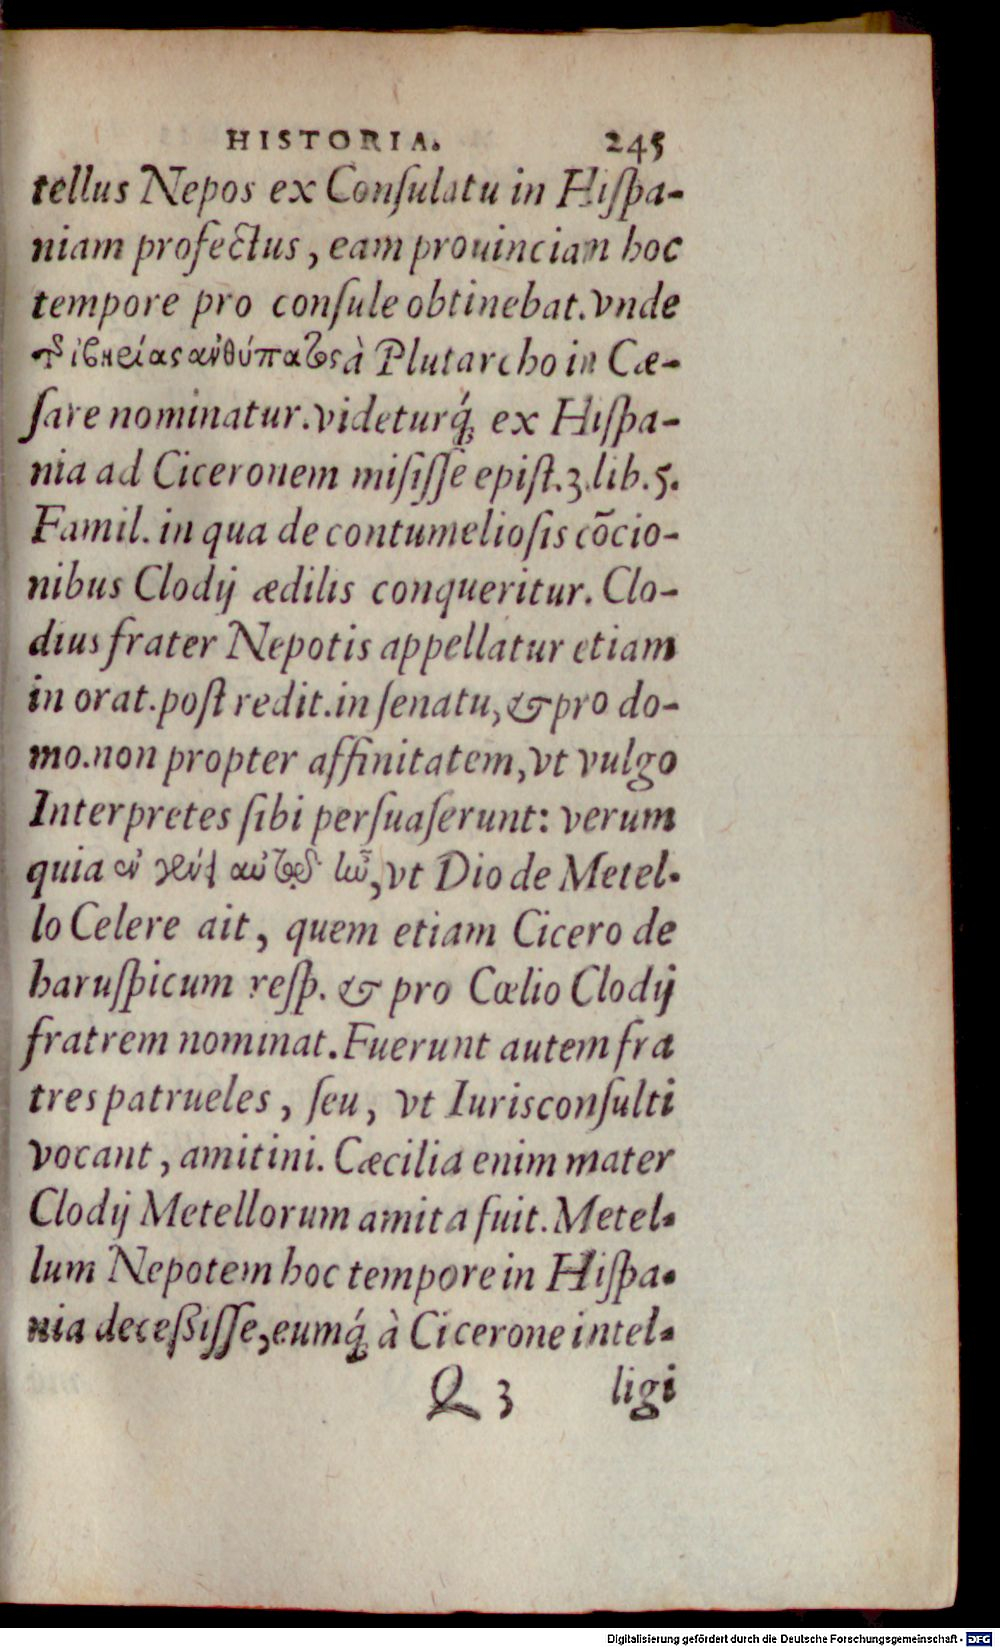 HISTORIA. 245
tellus Nepos ex Conſulatu in Hiſpa-
niam profectus, eam prouinciam hoc
tempore pro conſule obtinebat. vnde
τῆς ἰβηρίας ἀνθύπατος à Plutarcho in Cæ-
ſare nominatur. videturq́; ex Hiſpa-
nia ad Ciceronem miſiſſe epiſt. 3. lib. 5.
Famil. in qua de contumelioſis cōcio-
nibus Clodij ædilis conqueritur. Clo-
dius frater Nepotis appellatur etiam
in orat. poſt redit. in ſenatu, & pro do-
mo. non propter affinitatem, vt vulgo
Interpretes ſibi perſuaſerunt: verum
quia ἐν γένει αὐτοῦ ἦν, vt Dio de Metel-
lo Celere ait, quem etiam Cicero de
haruſpicum reſp. & pro Cœlio Clodij
fratrem nominat. Fuerunt autem fra
tres patrueles, ſeu, vt Iurisconſulti
vocant, amitini. Cæcilia enim mater
Clodij Metellorum amita fuit. Metel-
lum Nepotem hoc tempore in Hiſpa-
nia deceßiſſe, eumq́; à Cicerone intel-
Q 3 ligi
Digitalisierung gefördert durch die Deutsche Forschungsgemeinschaft - DFG